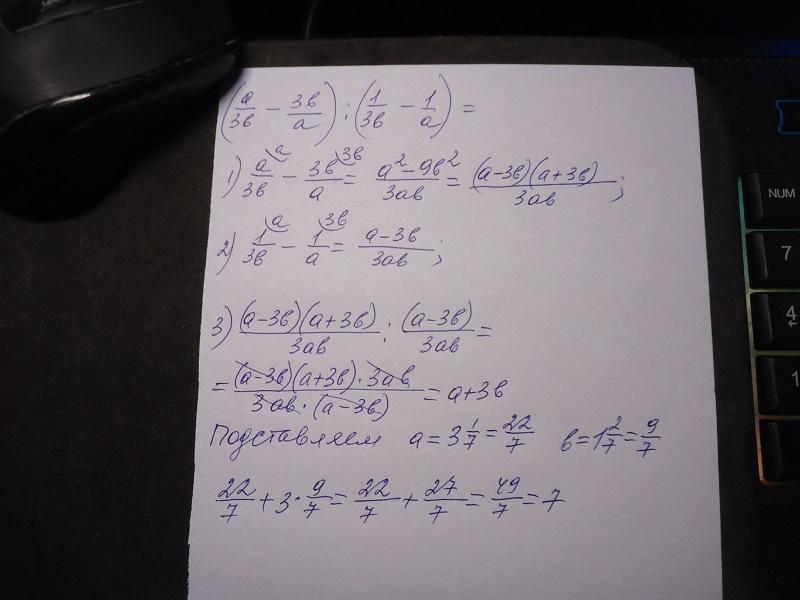 (a/3в - 3в/a) : (1/3в - 1/a) =
1) a/3в ⌒a - 3в/a ⌒3в = a² - 9в²/3aв = (a-3в)(a+3в)/3aв ;
2) 1/3в ⌒a - 1/a ⌒3в = a-3в/3aв ;
3) (a-3в)(a+3в)/3aв : (a-3в)/3aв =
= (a-3в)(a+3в)·3aв/3aв·(a-3в) = a+3в
Подставляем a = 3 1/7 = 22/7 в = 1 2/7 = 9/7
22/7 + 3·9/7 = 22/7 + 27/7 = 49/7 = 7
NUM
7
4
←
1